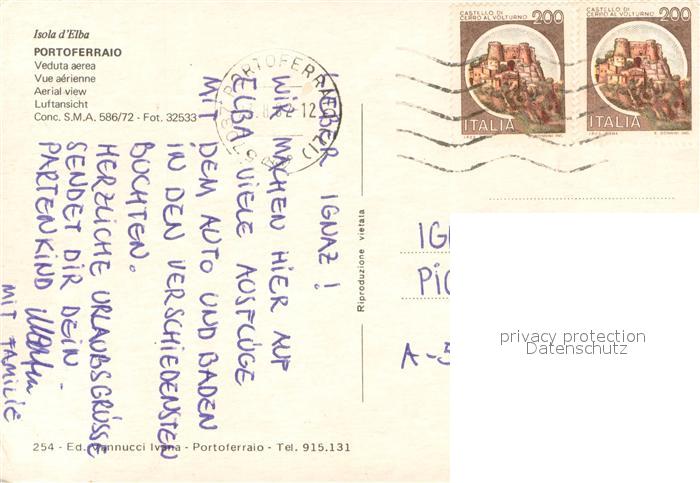 Isola d'Elba
PORTOFERRAIO
Veduta aerea
Vue aérienne
Aerial view
Luftansicht
Conc. S.M.A. 586/72 - Fot. 32533
CASTELLO DI
CERRO AL VOLTURNO 200
ITALIA
CASTELLO DI
CERRO AL VOLTURNO 200
ITALIA
PORTOFERRAIO (LI)
82-12
LIEBER IGNAZ!
WIR MACHEN HIER AUF
ELBA VIELE AUSFLÜGE
MIT DEM AUTO UND BADEN
IN DEN VERSCHIEDENSTEN
BUCHTEN.
HERZLICHE URLAUBSGRÜSSE
SENDET DIR DEIN
PATENKIND
MIT FAMILIE
Riproduzione vietata
IG
PIC
A-5
privacy protection
Datenschutz
254 - Ed. Vannucci Ivana - Portoferraio - Tel. 915.131